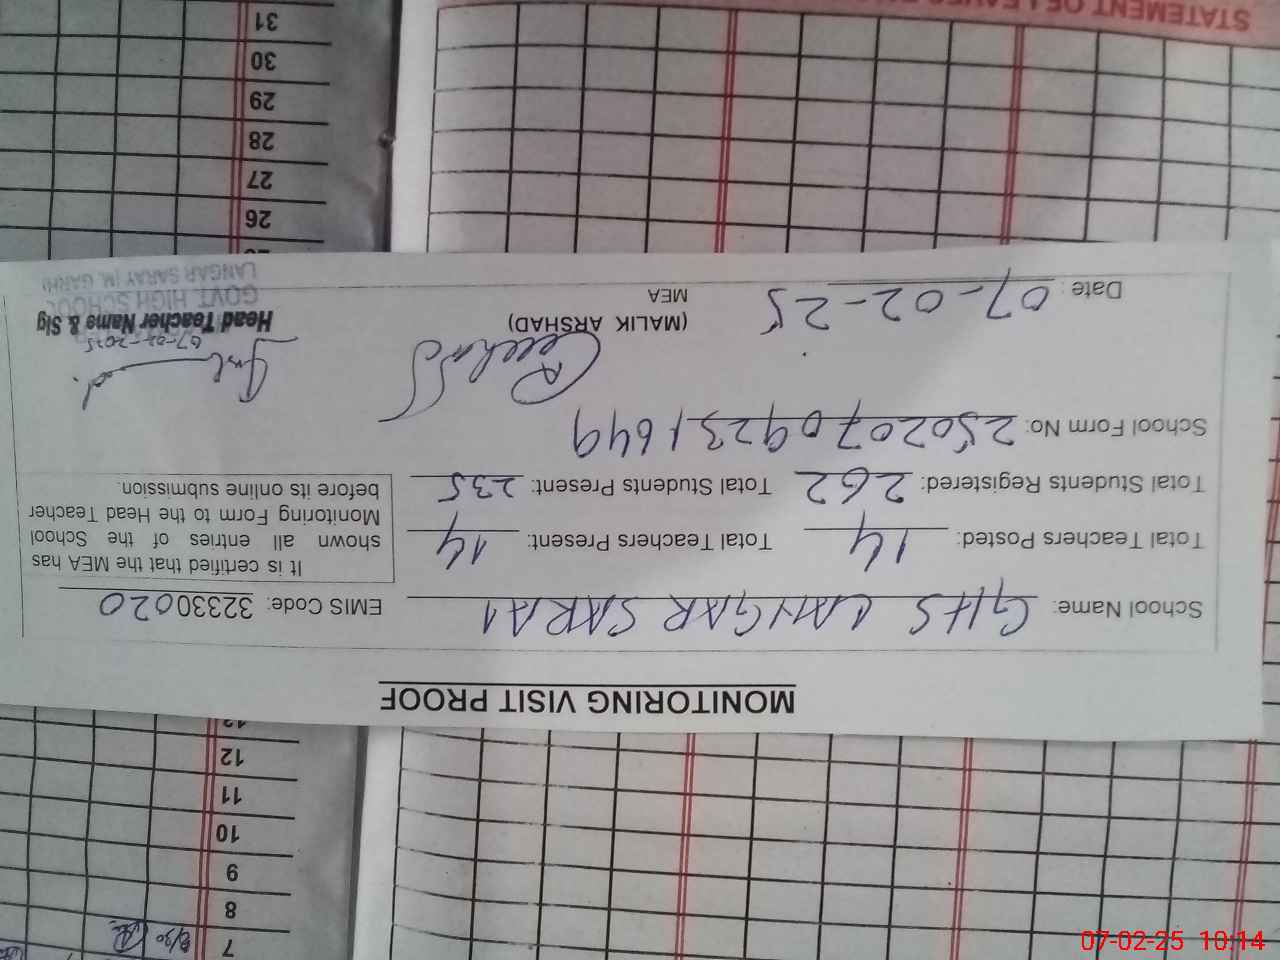 MONITORING VISIT PROOF
School Name: GHS LANGAR SARAI EMIS Code: 32330020
Total Teachers Posted: 14 Total Teachers Present: 14
Total Students Registered: 262 Total Students Present: 235
It is certified that the MEA has
shown all entries of the School
Monitoring Form to the Head Teacher
before its online submission.
School Form No: 25020709231649
07-02-2025
Date: 07-02-25
(MALIK ARSHAD)
MEA
Head Teacher Name & Sig
GOVT. HIGH SCHOOL
LANGAR SARAY (M. GARH)
STATEMENT OF LEAVES
7
8
9
10
11
12
13
26
27
28
29
30
31
07-02-25 10:14